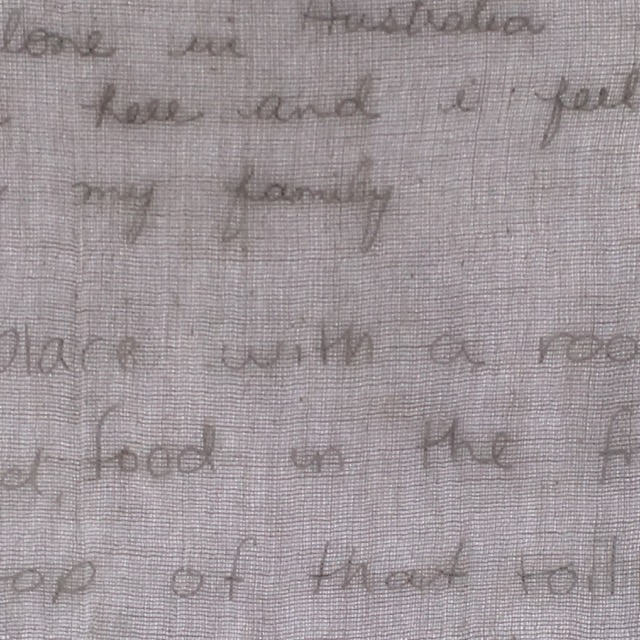 lone in Australia
here and i feel
my family
place with a roo
d, food in the f
op of that toll